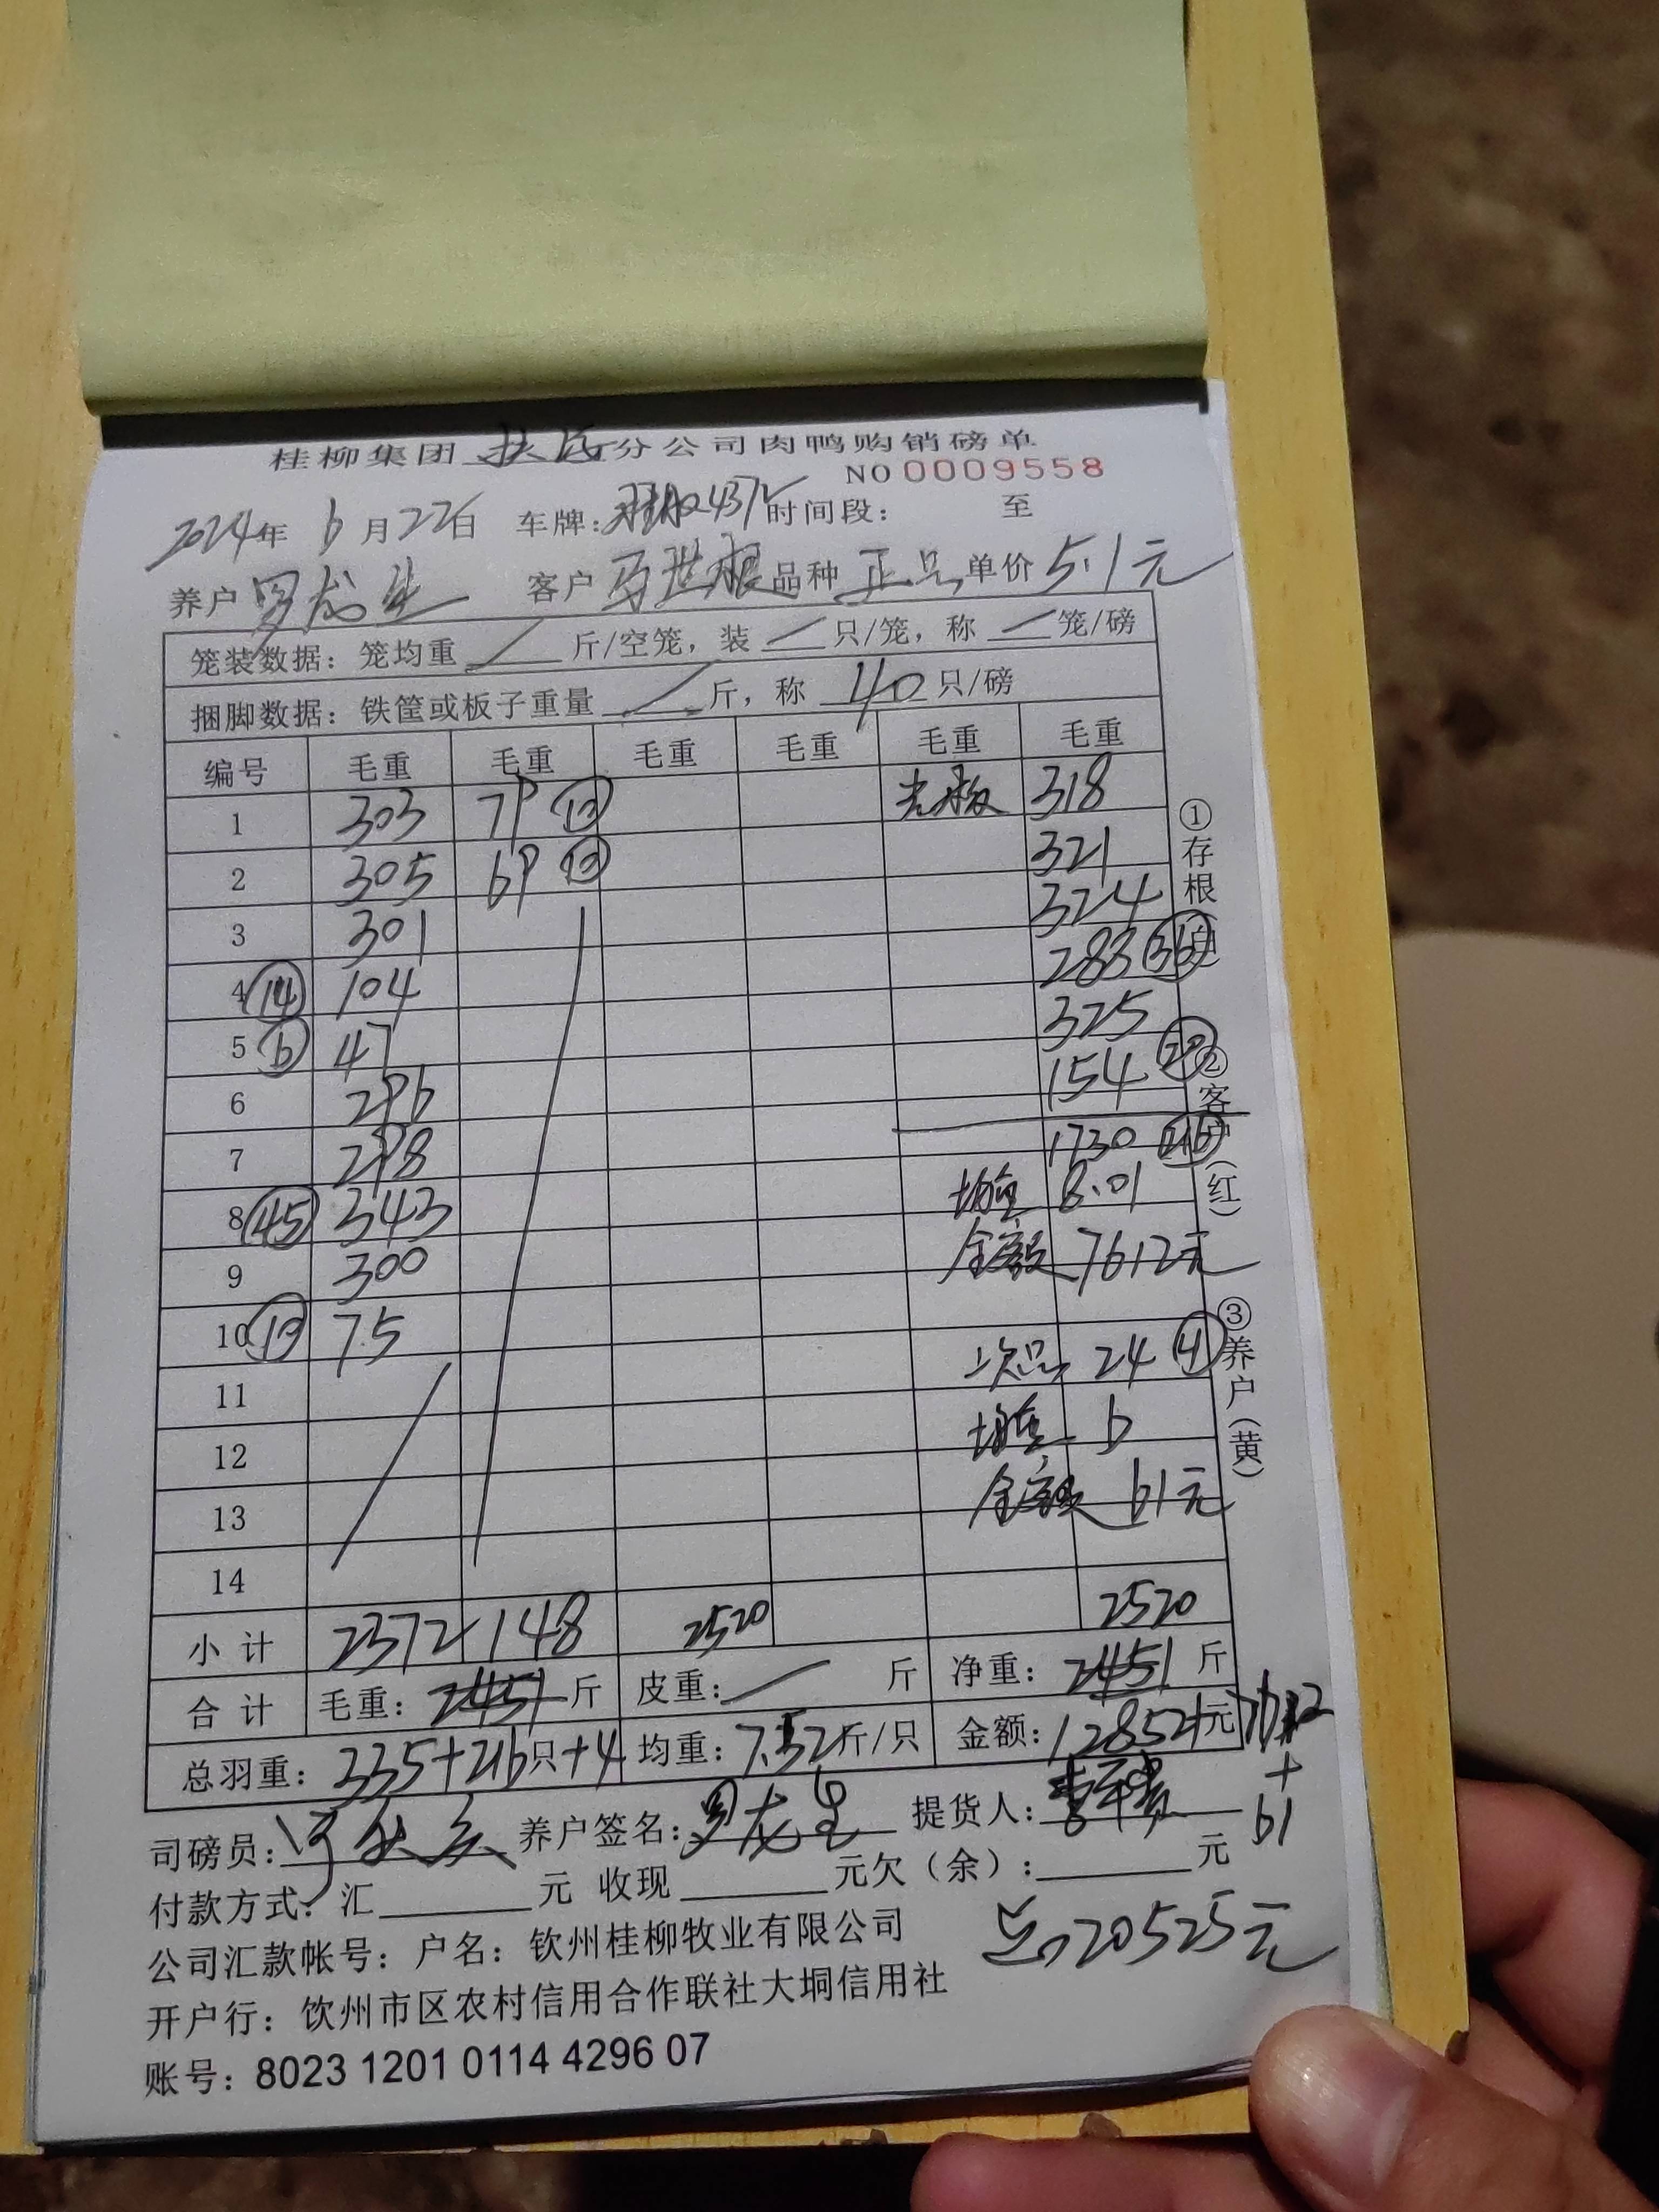 桂柳集团 扶民 分公司肉鸭购销磅单
NO 0009558
2024年 6月22日 车牌: 时间段: 至
养户 罗龙生 客户 马世根 品种 正品 单价 5.1元
笼装数据: 笼均重 / 斤/空笼, 装 / 只/笼, 称 / 笼/磅
捆脚数据: 铁筐或板子重量 / 斤, 称 40 只/磅
编号 毛重 毛重 毛重 毛重 毛重 毛重
1 303 79 ⑩ 光板 318
2 305 69 ⑩ 321
3 301 324
4 ⑭ 104 288 ㊱
5 ⑥ 47 325
6 296 154 ⑳
7 298 1730 (216)
8 ㊺ 343 均重 8.01
9 300 金额 7612元
10 ⑩ 75
11 次品 24 ④
12 均重 6
13 金额 61元
14
小计 2372 148 2520 2520
合计 毛重: 2451 斤 皮重: / 斤 净重: 2451 斤
总羽重: 335+216只+4 均重: 7.52斤/只 金额: 12852元 7612
+
61
司磅员: 养户签名: 罗龙生 提货人:
付款方式: 汇 元 收现 元欠(余): 元
总20525元
公司汇款帐号: 户名: 钦州桂柳牧业有限公司
开户行: 饮州市区农村信用合作联社大垌信用社
账号: 8023 1201 0114 4296 07
①存根(白)
②客户(红)
③养户(黄)